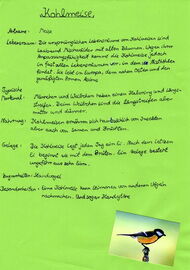 Kohlmeise
Aussehen: Meise
Lebensraum: Die ursprünglichen Lebensräume von Kohlmeisen sind
Laub und Mischwälder mit alten Bäumen. Wegen ihrer
Anpassungsfähigkeit kommt die Kohlmeise jedoch
in fast allen Lebensräumen vor, in dem sie
findet. Sie lebt in Europa, dem nahen Osten und den
Typische
Merkmal: Männchen und Weibchen haben einen
Streifen. Beim Weibchen sind die aber
matter und dünner.
Nahrung: Kohlmeisen ernähren sich hauptsächlich von Insekten
aber auch von Samen und Früchten.
Gelege: Die Kohlmeise legt jeden Tag ein Ei. Nach dem letzten
Ei beginnt sie mit dem Brüten. Ein Gelege besteht
ungefähr aus zehn Eiern.
Besonderheiten: Eine Kohlmeise kann Stimmen von anderen Vögeln
nachmachen. Und sogar Handytöne